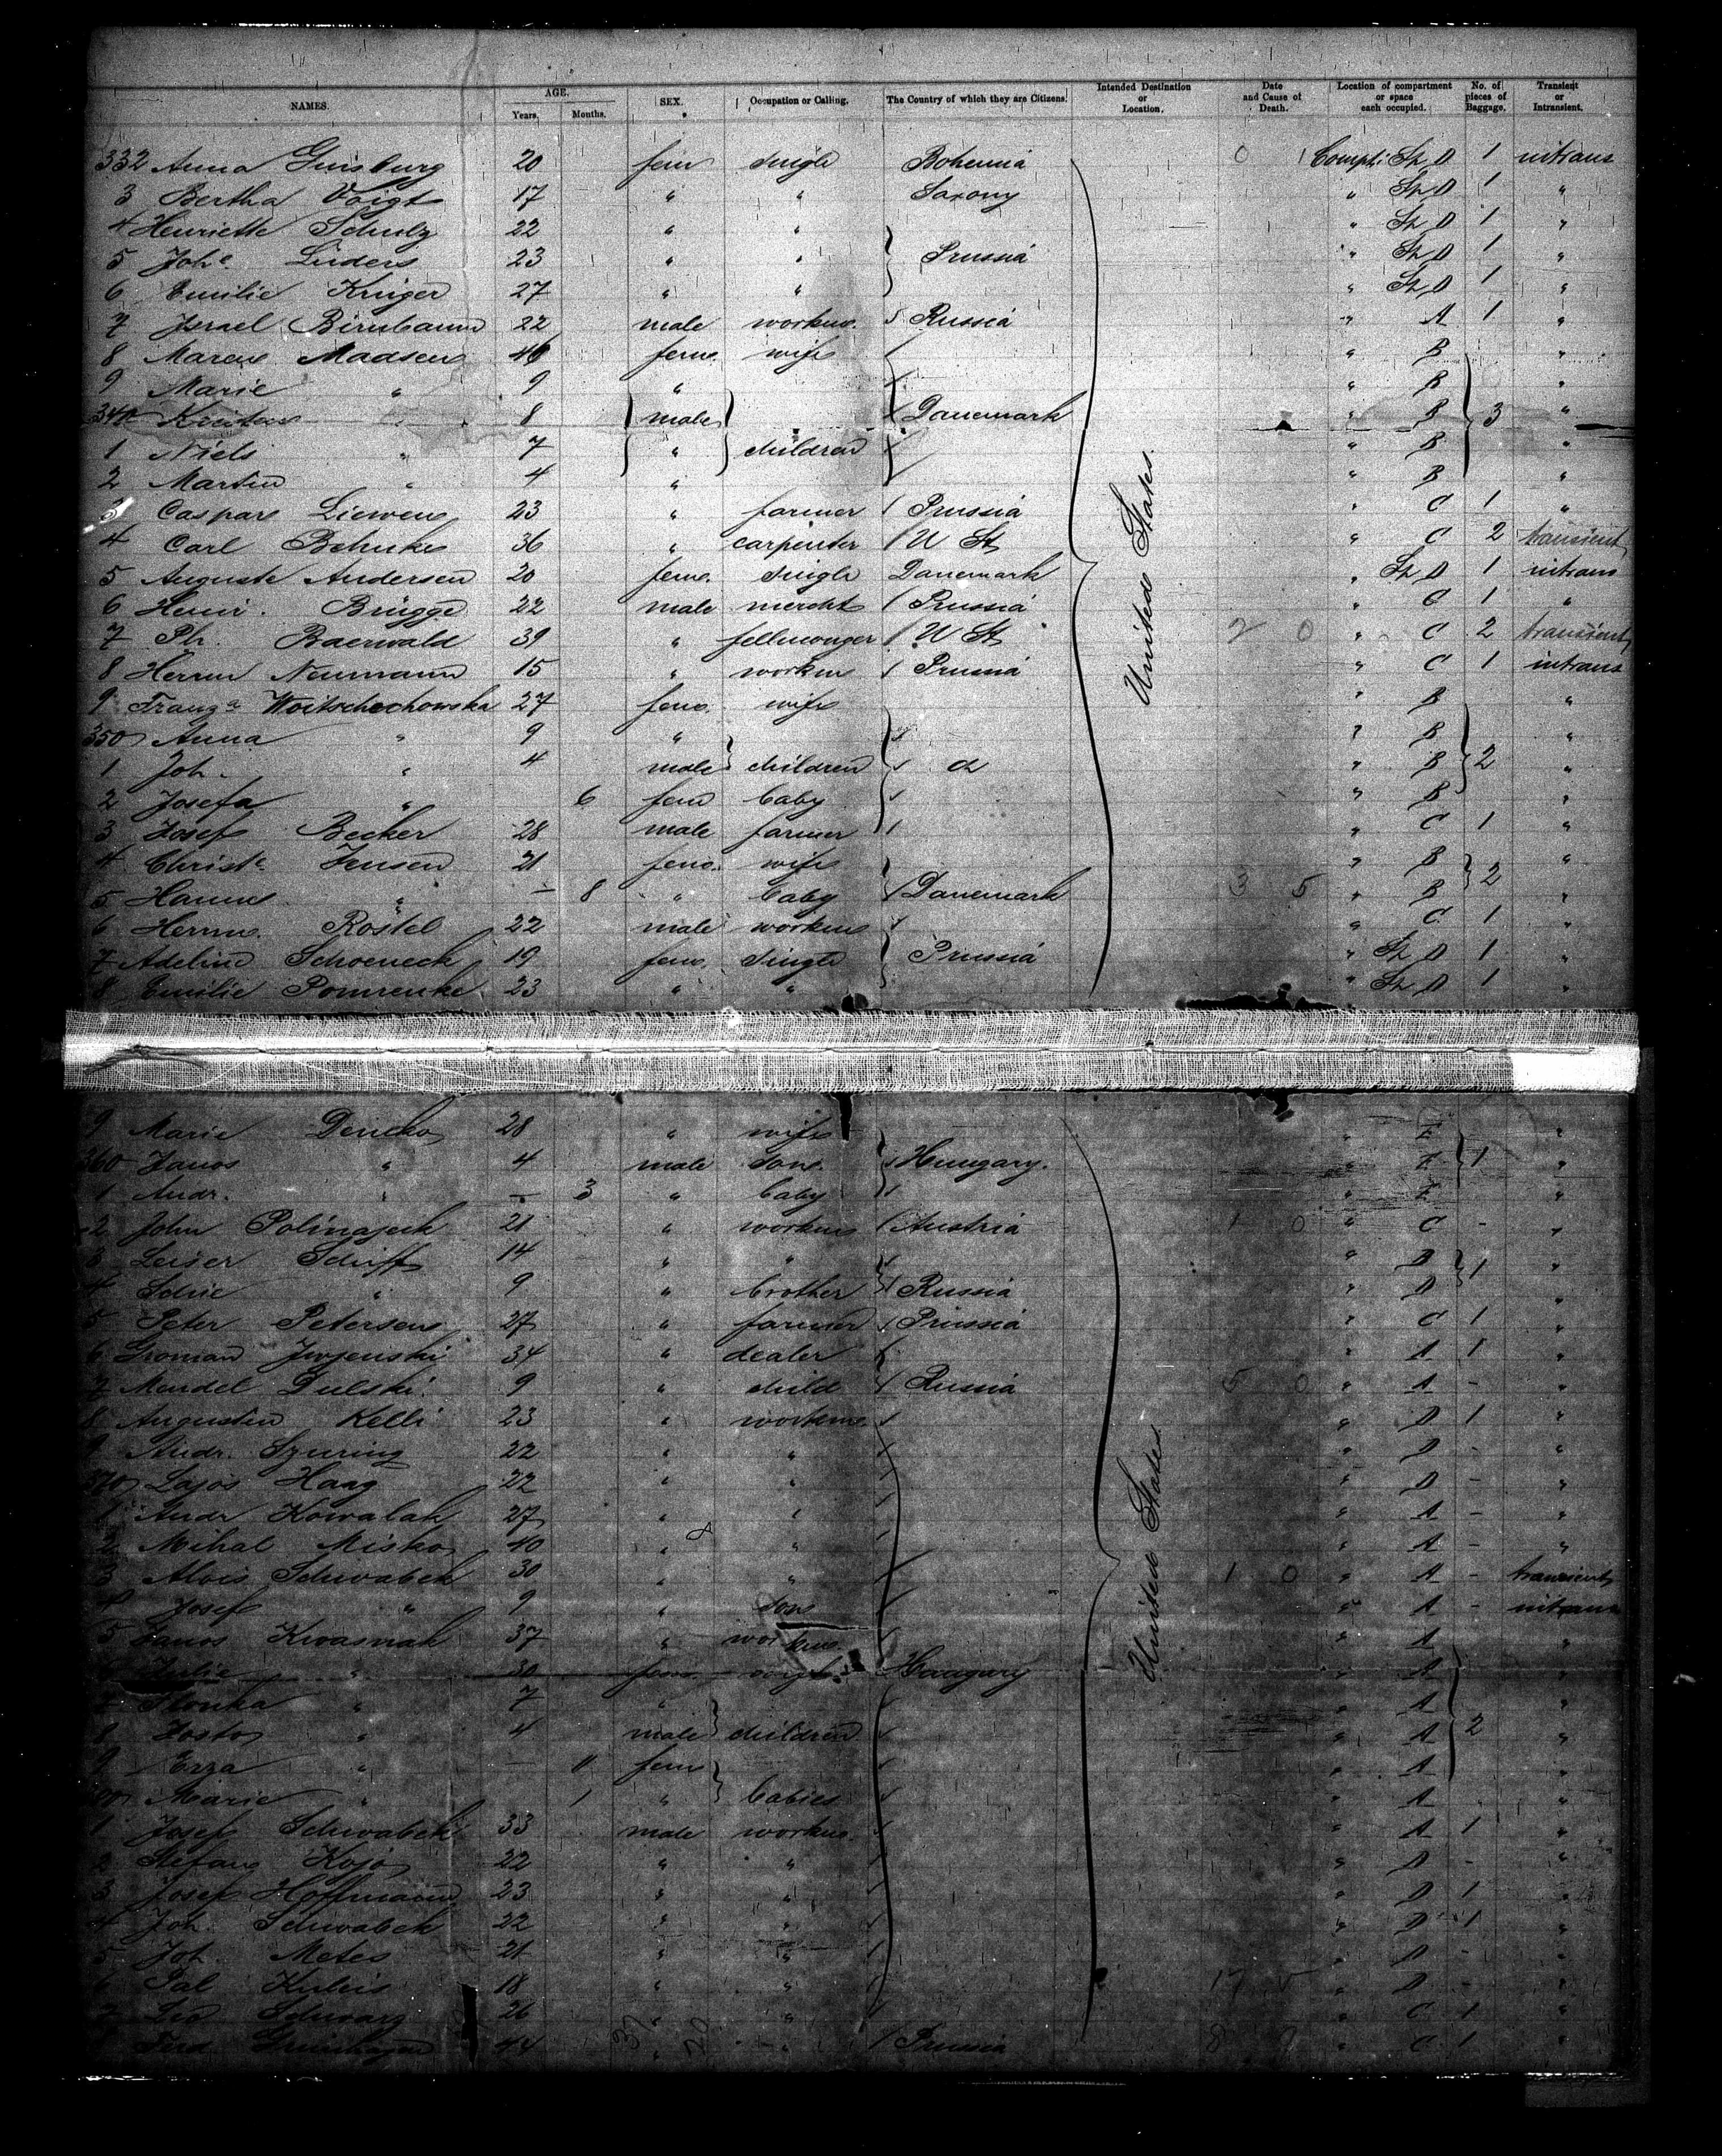 NAMES. AGE. Years. Months. SEX. Occupation or Calling. The Country of which they are Citizens. Intended Destination or Location. Date and Cause of Death. Location of compartment or space each occupied. No. of pieces of Baggage. Transient or Intransient.
332 Anna Ginsburg 20 fem single Bohemia 0 1 Compt: St. D 1 intrans
3 Bertha Voigt 17 " " Saxony " St. D 1 "
4 Henriette Schulz 22 " " " St. D 1 "
5 Johe. Lüders 23 " " Prussia " St. D 1 "
6 Emilie Krüger 27 " " " St. D 1 "
7 Israel Birnbaum 22 male workm. Russia " A 1 "
8 Maren Madsen 46 fem. wife " B "
9 Marie " 9 " " B "
340 8 male Danemark " B 3 "
1 Niels " 7 " children " B "
2 Martin " 4 " " B "
3 Caspar Liewen 23 " farmer Prussia " C 1 "
4 Carl Behnke 36 " carpenter U St " C 2 transient
5 Auguste Andersen 20 fem. single Danemark " St. D 1 intrans
6 Heinr. Brügge 22 male mercht Prussia " C 1 "
7 Ph. Baerwald 39 " fellmonger U St 2 0 " C 2 transient
8 Herrm Neumann 15 " workm Prussia " C 1 intrans
9 Franza Woitschechowska 27 fem. wife " B "
350 Anna " 9 " " B "
1 Joh. " 4 male children d " B 2 "
2 Josefa " 6 fem baby " B "
3 Josef Becker 28 male farmer " C 1 "
4 Christe. Jensen 21 fem. wife " B 2 "
5 Hanne " — 8 " baby Danemark 3 5 " B "
6 Herrm. Rostel 22 male workm " C 1 "
7 Adeline Schoeneck 19 fem. single Prussia " St. D 1 "
8 Emilie Pomrenke 23 " " " St. D 1 "
United States.
9 Marie Dencko 28 " wife " E "
360 Janos " 4 male son. Hungary. " E 1 "
1 Andr. " — 3 " baby " E "
2 John Polinajeck 21 " workm Austria 1 0 " C - "
3 Leiser Schiff 14 " " " D 1 "
4 " 9 " brother Russia " D "
5 Peter Petersen 27 " farmer Prussia " C 1 "
6 34 " dealer " A 1 "
7 Mendel Dulski 9 " child Russia 5 0 " A - "
8 Augustin Kelli 23 " workm " D 1 "
9 Andr. Szuring 22 " " " D - "
370 Lajos Haag 22 " " " D - "
1 Andr Kowalak 27 " " " A - "
2 Mihal Misko 40 " " " A - "
3 Alois Schwabek 30 " " 1 0 " A - transient
4 Josef " 9 " son " A - intrans
5 Janos Kwasnak 37 " workm. " A "
6 Julie " 30 fem. wife Hungary " A "
7 Ilonka " 7 " " A "
8 " 4 male children " A 2 "
9 " — 11 fem " A "
Marie " 1 " babies " A "
1 Josef Schwabek 33 male workm. " A 1 "
2 Stefan Kojo 22 " " " D - "
3 Josef Hoffmann 23 " " " D 1 "
4 Joh. Schwabek 22 " " " D 1 "
5 Joh. Metes 21 " " " D - "
6 Pal 18 " " 17 " D - "
7 Schwarz 26 " " " C 1 "
Ferd. 44 " " Prussia 8 " C 1 "
United States.